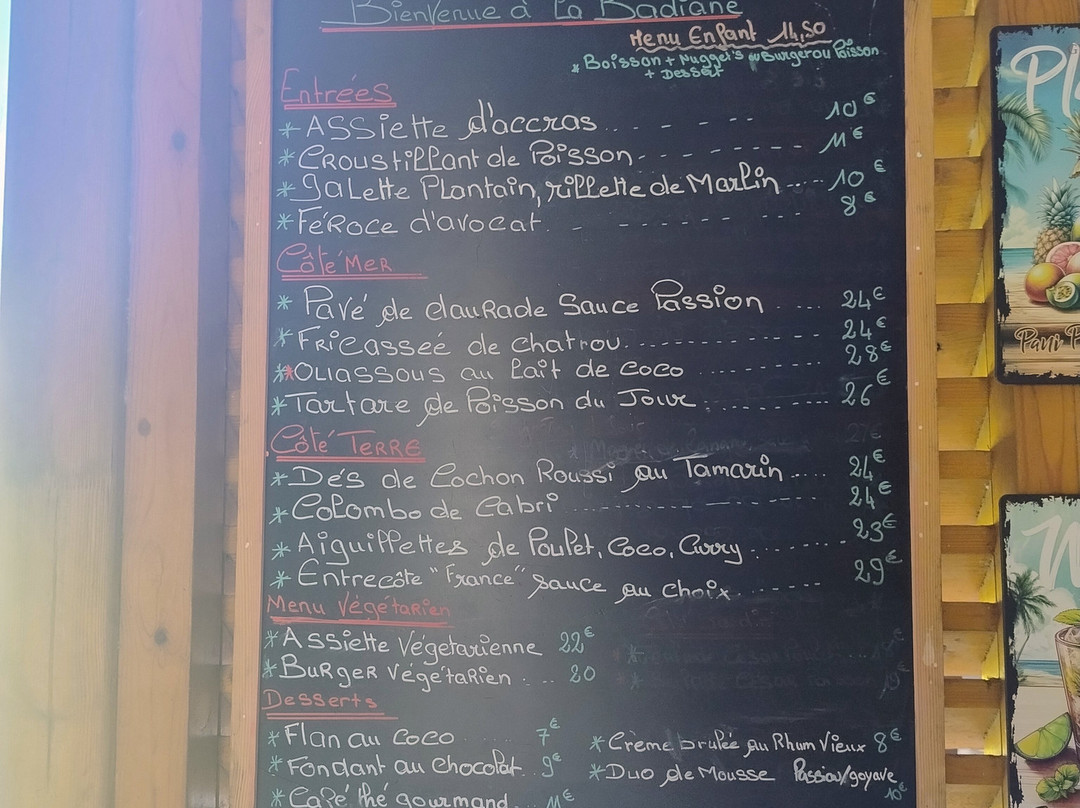 Bienvenue à La Badiane
Menu Enfant 14,50
* Boisson + Nugget's ou Burger ou Poisson
+ Dessert
Entrées
* Assiette d'accras.. - - - -- 10€
* Croustillant de Poisson- - - - - - - - 11€
* Galette Plantain, rillette de Marlin ---- 10€
* Féroce d'avocat. - - - - - - - - - 8€
Côté Mer
* Pavé de daurade Sauce Passion ..... 24€
* Fricasseé de chatrou.------------- 24€
* Ouassous au lait de coco ......... 28€
* Tartare de Poisson du Jour.------- 26€
Côté Terre
* Dés de Cochon Roussi au Tamarin .... 24€
* Colombo de Cabri ................ 24€
* Aiguillettes de Poulet, Coco, Curry ....... 23€
* Entrecôte "France" sauce au choix. ...... 29€
Menu Végétarien
* Assiette Végetarienne 22€
* Burger Végétarien . .. 20
Desserts
* Flan au coco 7€
* Crème brulée au Rhum Vieux 8€
* Fondant au chocolat.. 9€
* Duo de Mousse Passion/goyave
10€
* Café thé gourmand... 11€